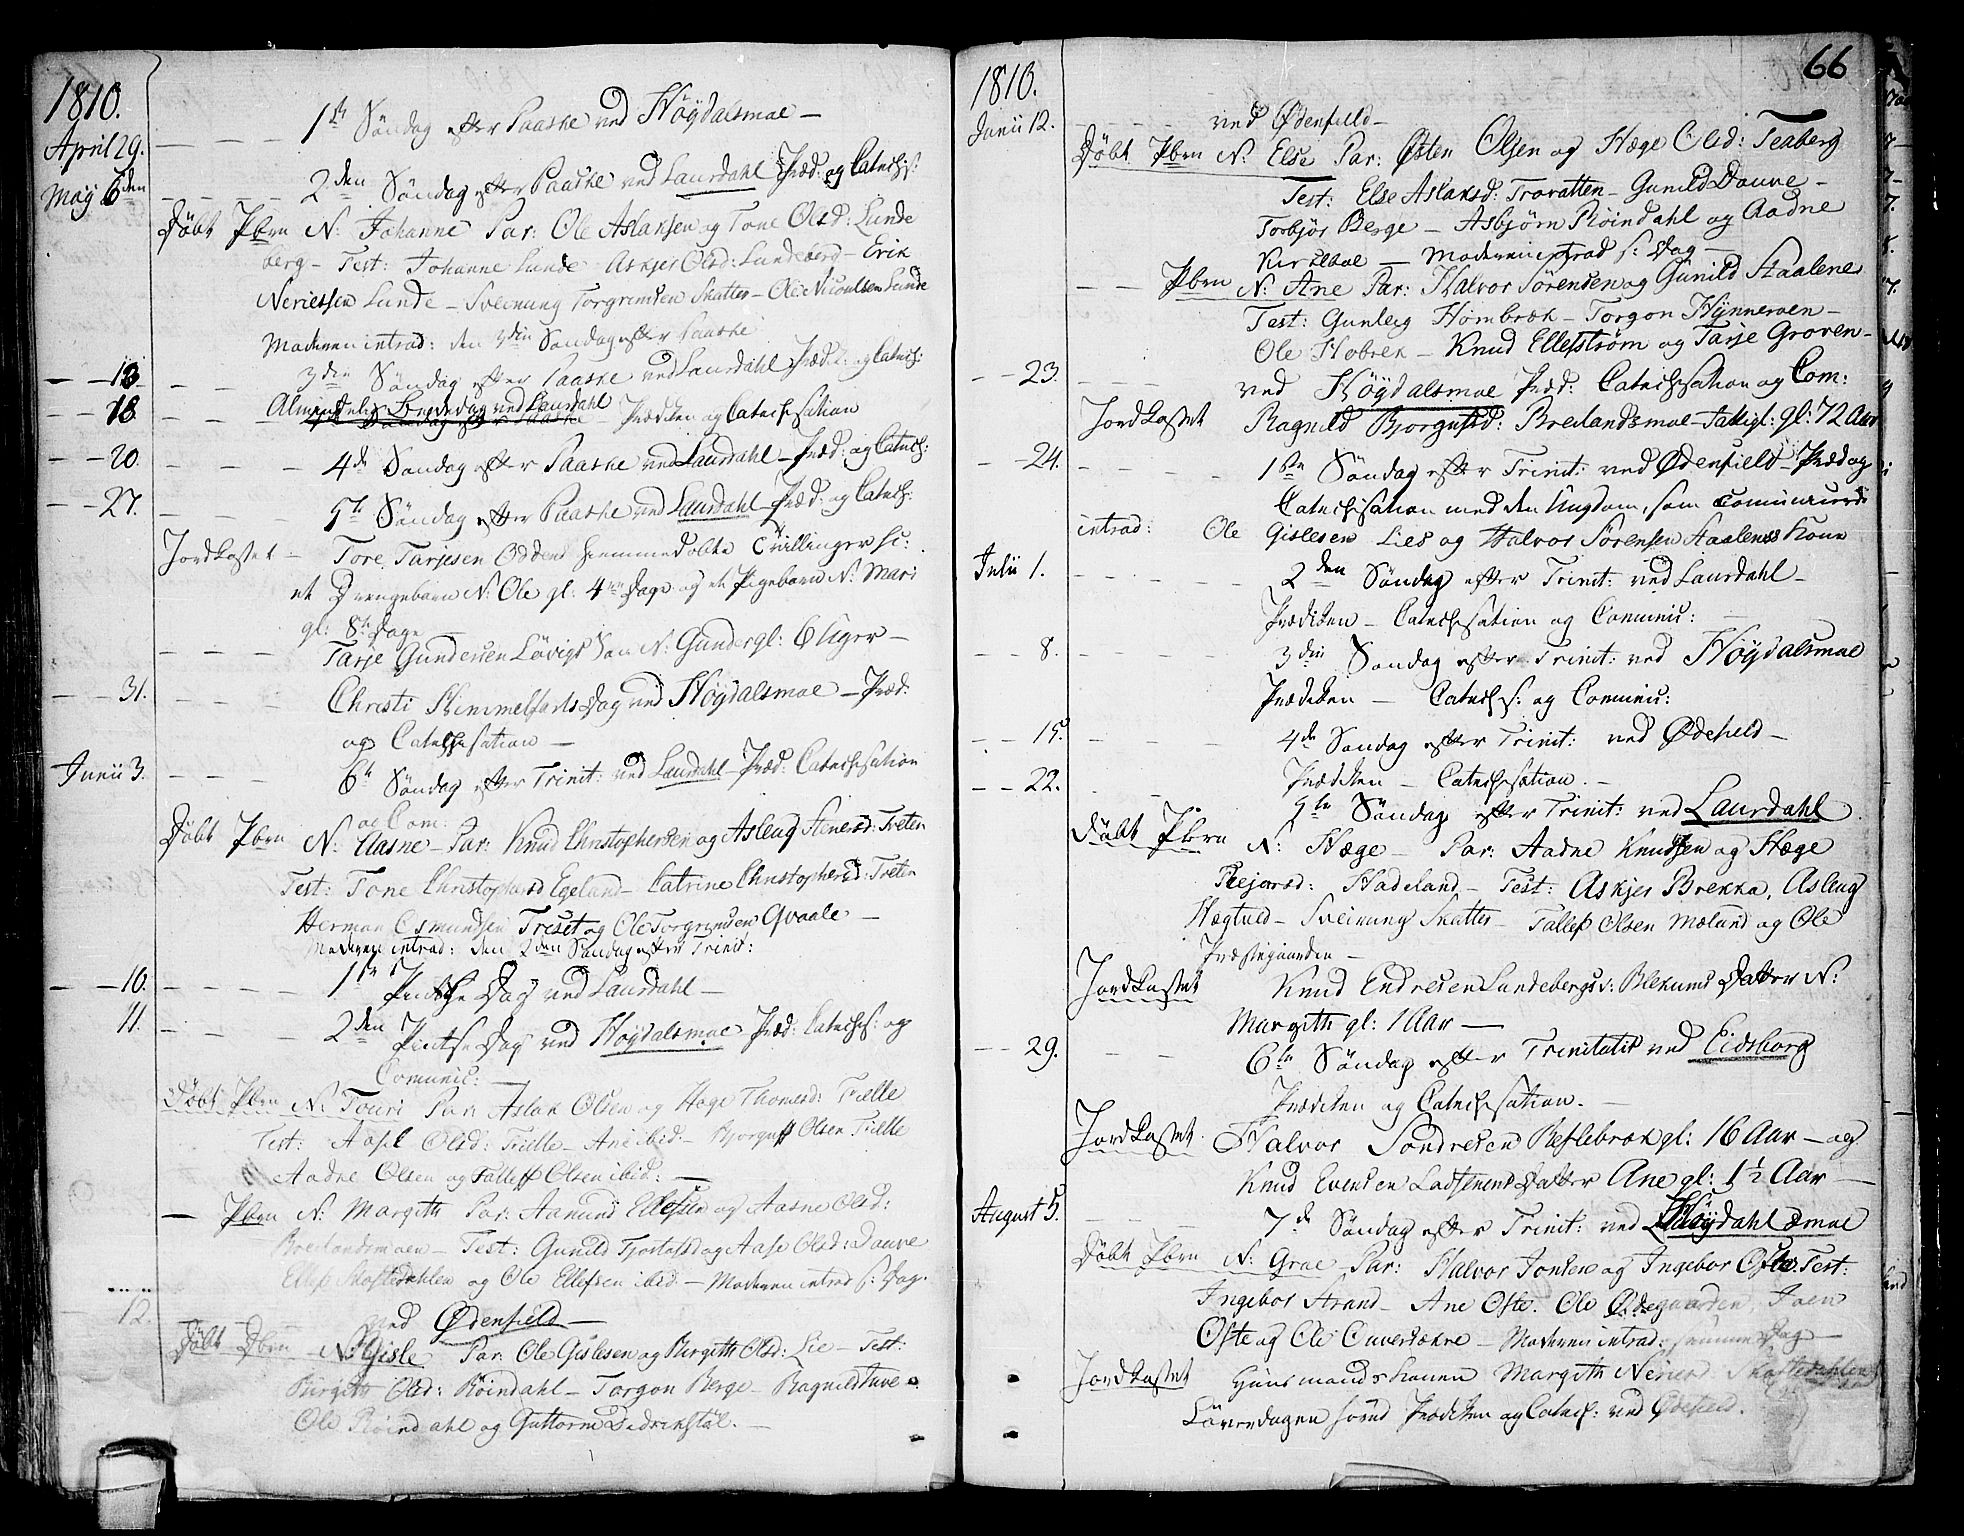 1810.
April 29. 1ste Søndag efter Paaske ved Høÿdalsmoe –
Maÿ 6den 2den Søndag efter Paaske ved Laurdahl Præd: og Catechis:
Døbt Pbrn N: Johanne Par: Ole Aslaksen og Tone Olsd: Lunde
berg – Test: Johanne Lunde – Askjer Olsd: Lundeberg – Erik
Neriessen Lunde – Sveinung Torgrimsen Skatter – Ole Nicoulsen Lunde
Moderen introd: den 3die Søndag efter Paaske
– – 13. 3den Søndag efter Paaske ved Laurdahl Præd: og Catech:
– – 18. Almindelig Bededag ved Laurdahl
Prædiken og Catechisation
– – 20. 4de Søndag efter Paaske ved Laurdahl – Præd: og Catech:
– – 27. 5te Søndag efter Paaske ved Laurdahl – Præd: og Catech:
Jordkastet – Tore Tarjesen Oddens hiemmedøbte Tvillinger sc:
et Drengebarn N: Ole gl: 4re Dage og et Pigebarn N: Mari
gl: 8te Dage
Tarje Gundersen Løvigs Søn N: Gunder gl: 6 Uger –
– – 31. Christi Himmelfarts Dag ved Høÿdalsmoe – Præd:
og Catechisation –
Junii 3. 6te Søndag efter Trinit: ved Laurdahl – Præd: Catechisation
og Com:
Døbt Pbrn N: Aasne – Par: Knud Christophersen og Asloug Stenersd: Treten
Test: Tone Christophersd Egeland – Catrine Christophersd: Treten
Herman Osmundsen Triset og Ole Torgrimsen Qvaale –
Moderen introd: den 2den Søndag efter Trinit:
– – 10. 1ste Pintse Dag ved Laurdahl –
11. 2den Pintse Dag ved Høÿdalsmoe Præd: Catechis: og
Comunic: –
Døbt Pbrn N: Touri Par: Aslak Olsen og Hæge Thomesd: Tielle
Test: Aasil Olsd: Tielle – Ane ibid – Bjorguff Olsen Tielle
Aadne Olsen og Talleff Olsen ibid: –
– Pbrn N: Margith Par: Aamund Ellefsen og Aasne Olsd:
Breilandsmoen – Test: Gunild Tjostofsd og Aase Olsd: Douve
Ellef Skoftedahlen og Ole Ellefsen ibid – Moderen introd s: Dag.
12. ved Ødenfield –
Døbt Dbrn N: Gisle Par: Ole Gislesen og Birgith Olsd: Lie – Test:
Birgith Olsd: Røindahl – Torgon Berge – Ragnild Tuve –
Ole Røindahl og Guttorm Dedrikstøl. –
66
1810.
Junii 12. ved Ødenfield –
Døbt Pbrn N: Else Par: Østen Olsen og Hæge Olsd: Teaberg
Test: Else Aslaksd: Trovatten – Gunild Douve –
Torbjør Berge – Asbjørn Røindahl og Aadne
Kirkeboe – Moderen introd s: Dag –
– – Pbrn N: Ane Par: Halvor Sørensen og Gunild Staalene
Test: Gunleig Hombræk – Torgon Hynneroen –
Ole Hobrek – Knud Ellefström og Tarje Groven –
– – 23. ved Høÿdalsmoe Præd: Catechisation og Com:
Jordkastet Ragnild Bjorgufsd: Breilandsmoe – Fattigl: gl: 72 Aar
– – 24. 1ste Søndag efter Trinit: ved Ødenfield – Præd og
Catechisation med den Ungdom, som Comunicerede
introd: Ole Gislesen Lies og Halvor Sørensen Staalenes Kone
Julii 1. 2den Søndag efter Trinit: ved Laurdahl –
Prædiken – Catechisation og Comunic:
– – 8. 3die Søndag efter Trinit: ved Høÿdalsmoe
Prædiken – Catechis: og Comunic:
– – 15. 4de Søndag efter Trinit: ved Ødefield –
Prædiken – Catechisation. –
– – 22. 5te Søndag efter Trinit: ved Laurdahl
Døbt Pbrn N: Hæge – Par: Aadne Knudsen og Hæge
Rejorsd: Hadeland – Test: Askjer Brekka, Asloug
Hægtved – Sveinung Skatter – Tallef Olsen Moeland og Ole
Præstegaarden –
Jordkastet Knud Endresen Lundebergs v: Blekums Datter N:
Margith gl: 1 Aar –
– – 29. 6te Søndag efter Trinitatis ved Eidsborg
Prædiken og Catechisation. –
Jordkastet Halvor Sondresen Reslebræk gl: 16 Aar – og
Knud Evensen Ladstuens Datter Ane gl: 1½ Aar –
August 5. 7de Søndag efter Trinit: ved Høÿdahlsmoe
Døbt Pbrn N: Groe Par: Halvor Jonsen og Ingebor Ofte Test:
Ingebor Strand – Ane Ofte. Ole Ødegaarden, Joen
Ofte og Ole – Moderen introd: samme Dag –
Jordkastet Huusmands Konen Margith Neriesd Skoftedahlen
Løverdagen forud Prædiken og Catech: ved Ødefield.